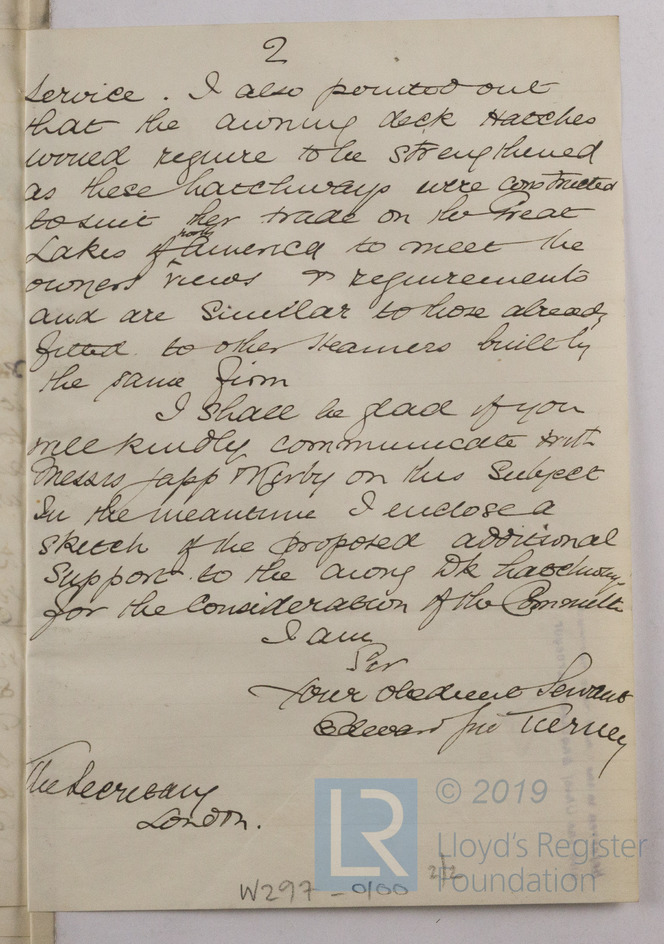 2
service. I also pointed out
that the awning deck Hatches
would require to be strengthened
as these hatchways were constructed
to suit her trade on the Great
Lakes of North America to meet the
owners views & requirements
and are similar to those already
fitted to other steamers built by
the same firm
I shall be glad if you
will kindly communicate with
Messrs Japp & Kirby on this subject
In the meantime I enclose a
sketch of the proposed additional
Support to the awng Dk hatchway
for the consideration of the Committee
I am
Sir
Your obedient Servant
Edward Jno Tierney
The Secretary
London.
© 2019
LR
Lloyd's Register
Foundation
W297-0100
2/2